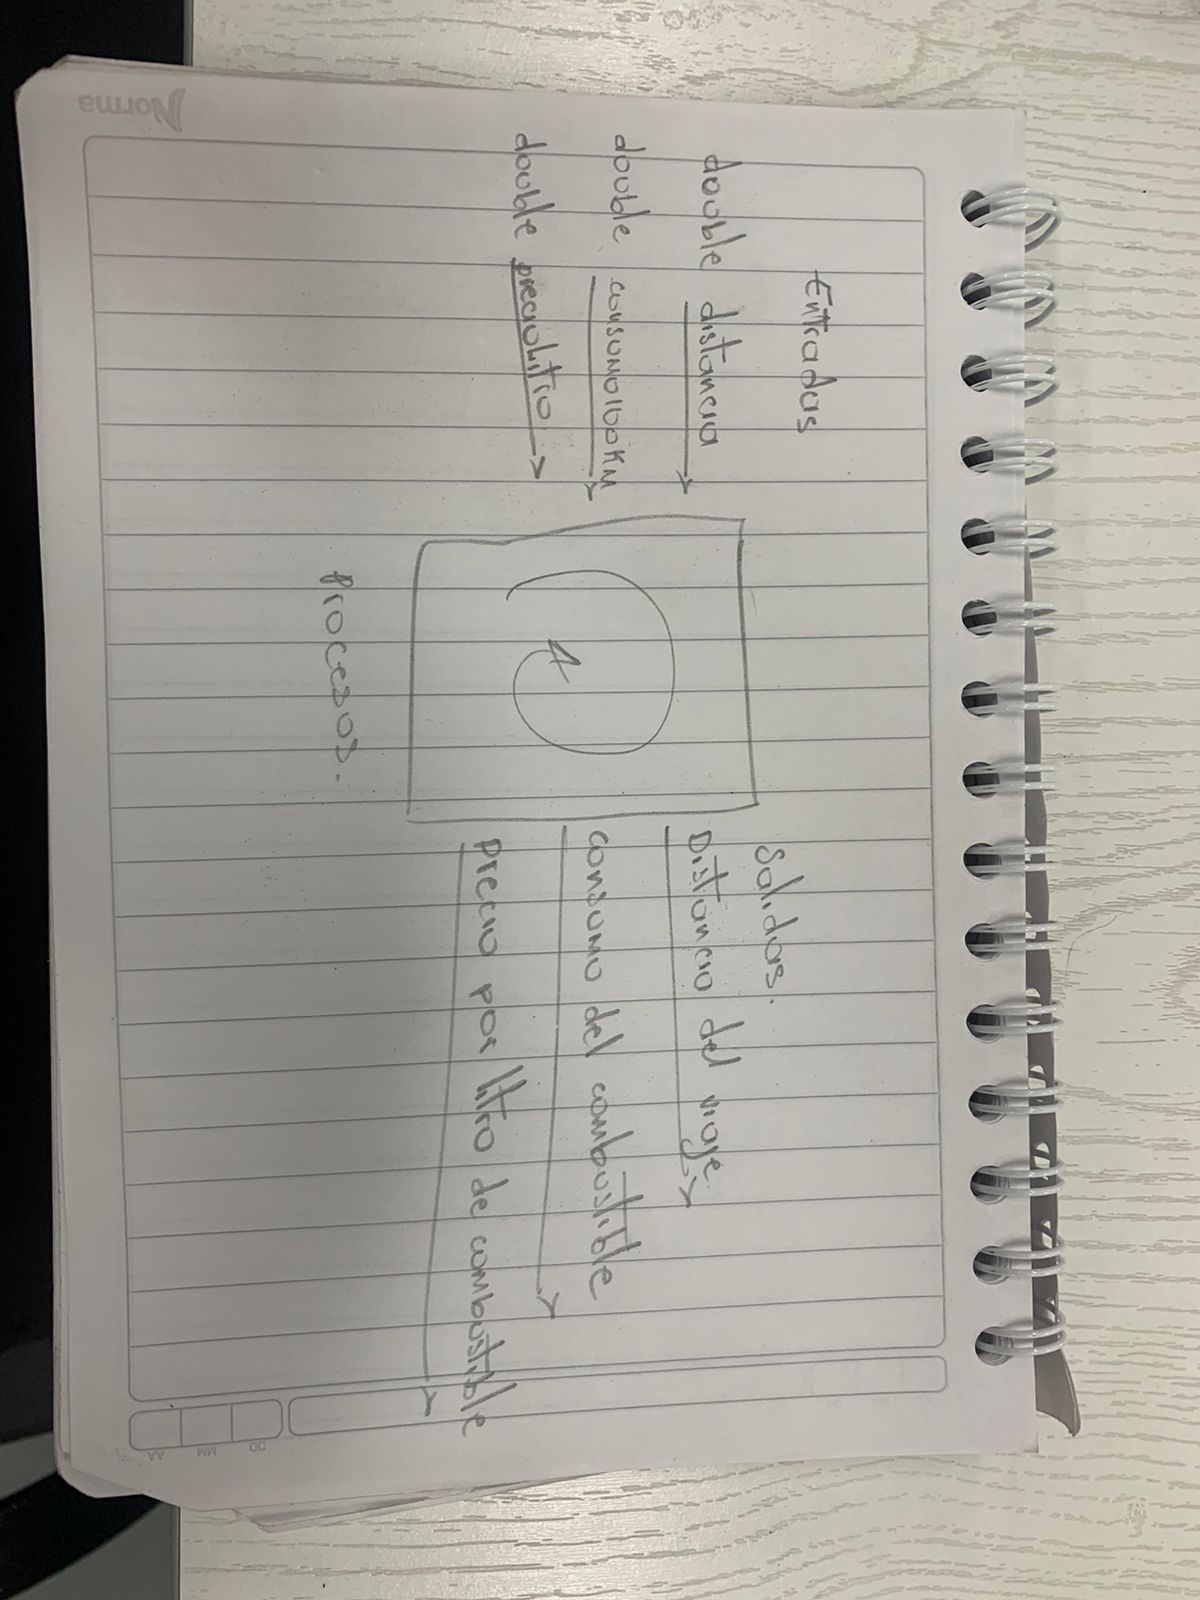 Entradas
double distancia
double consumo100KM
double precioLitro
Procesos.
Salidas.
Distancia del viaje.
consumo del combustible
precio por litro de combustible
Norma
DD MM AA